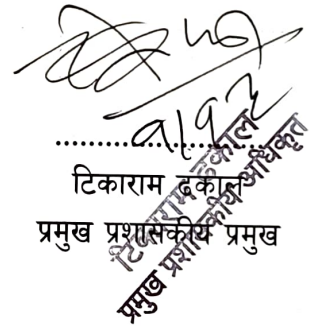 टिकाराम ढकाल
प्रमुख प्रशासकीय प्रमुख
टिकाराम ढकाल
प्रमुख प्रशासकीय अधिकृत